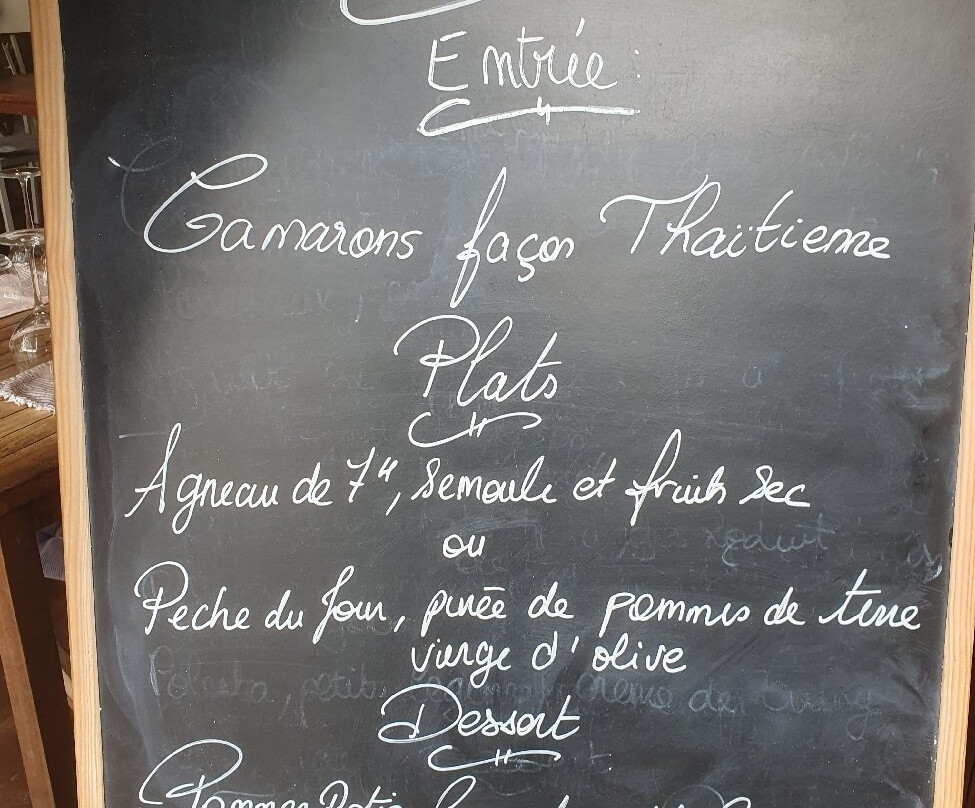 Entrée :
Camarons façon Thaïtienne
Plats
Agneau de 7H, semoule et fruits sec
ou
Peche du Jour, purée de pommes de terre
vierge d'olive
Dessert